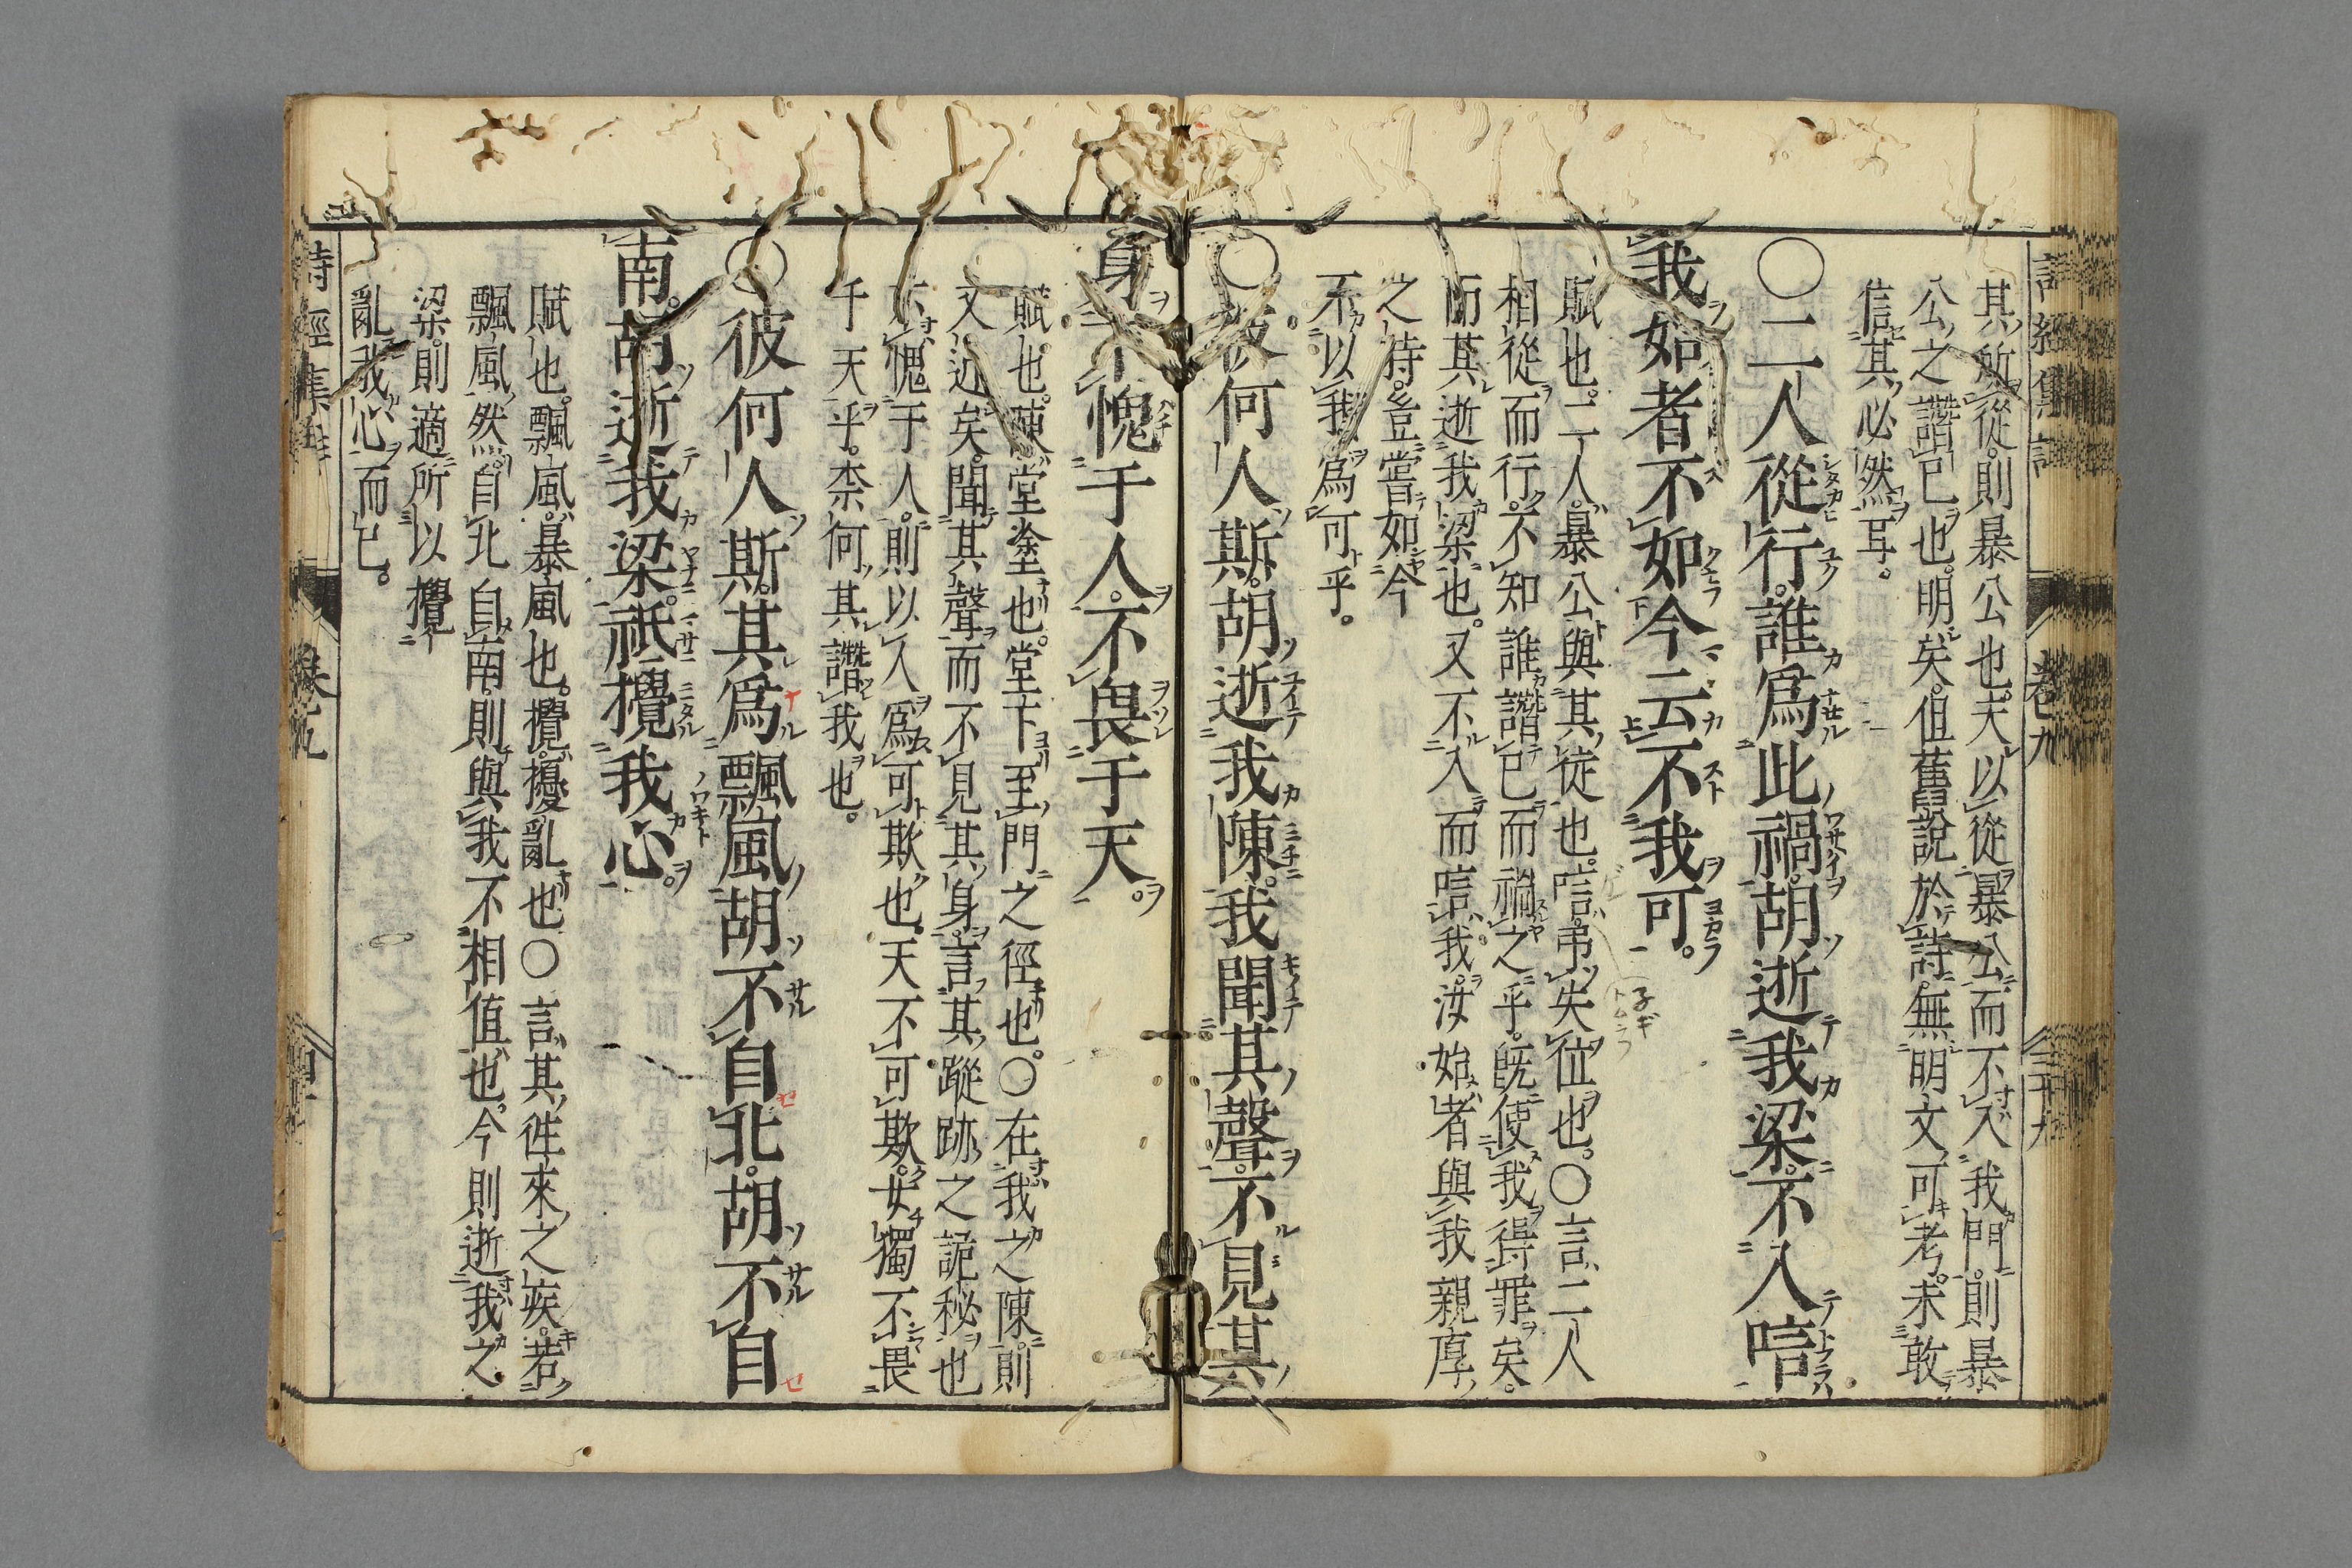 詩經集註 卷九 三十九
其所從則暴公也天以從暴公而不入我門則暴
公之譖已也明矣但舊說於詩無明文可考未敢
信其必然耳。
○二人從行。誰爲此禍。胡逝我梁。不入唁
我。始者不如今。云不我可。
賦也。二人暴公與其從也。唁弔失位也。○言二人
相從而行。不知誰譖已而禍之乎。旣使我得罪矣。
而其逝我梁也。又不入而唁我。汝始者與我親厚
之時。豈嘗如今
不以我爲可乎。
○彼何人斯。胡逝我陳。我聞其聲。不見其
身。不愧于人。不畏于天。
賦也。陳堂塗也。堂下至門之徑也。○在我之陳。則
又近矣。聞其聲而不見其身。言其蹤跡之詭秘也
不愧于人。則以人爲可欺也。天不可欺。女獨不畏
于天乎。柰何其譖我也。
○彼何人斯。其爲飄風。胡不自北。胡不自
南。胡逝我梁。祇攪我心。
賦也。飄風。暴風也。攪。擾亂也。○言其徃來之疾。若
飄風然。自北自南。則與我不相值也。今則逝我之
梁。則適所以攪
亂我心而已。
詩經集註